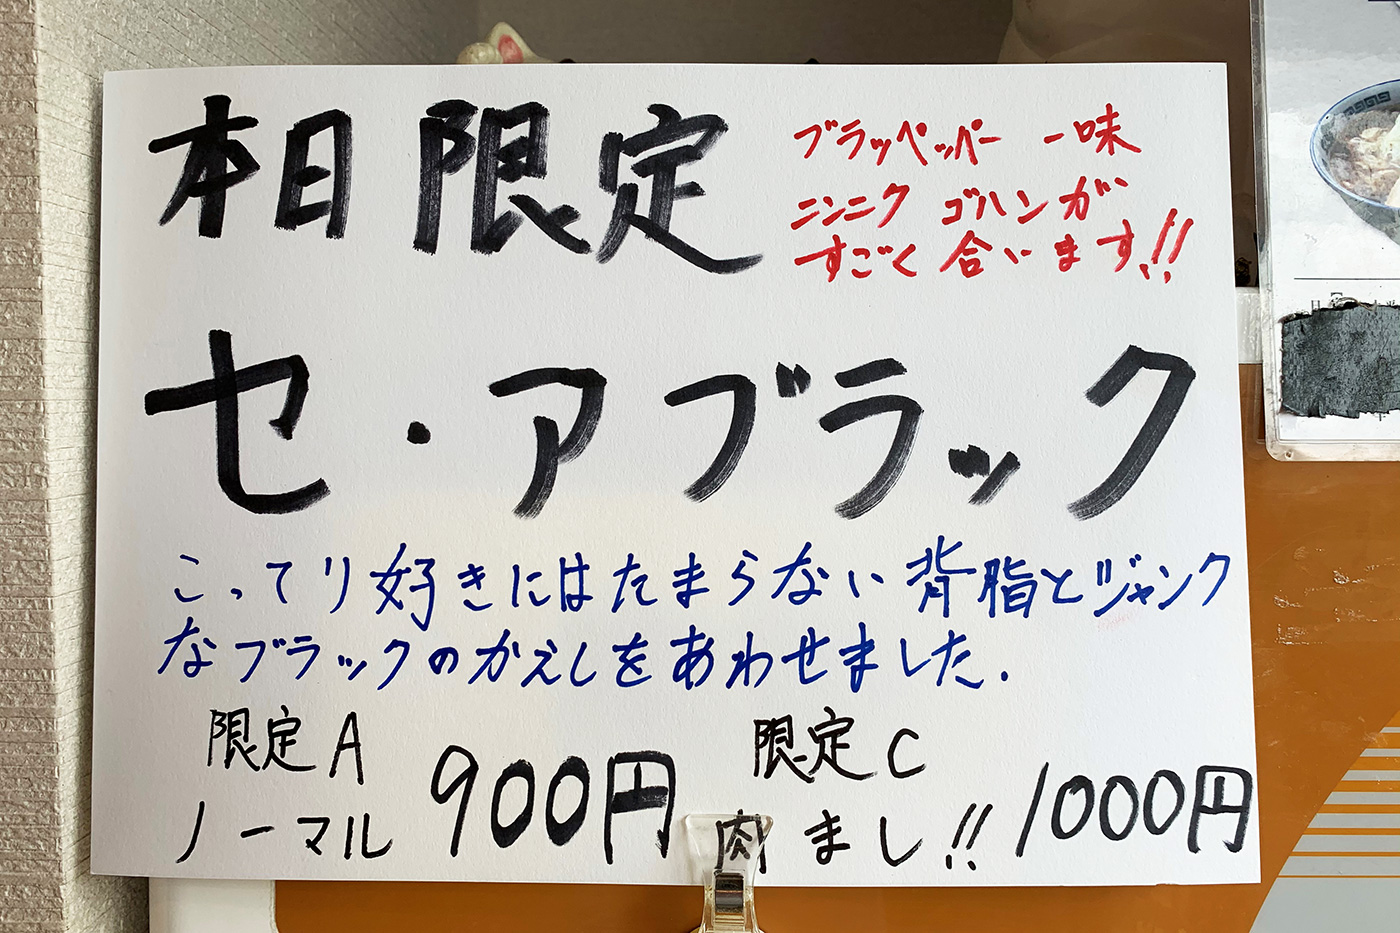 本日限定
ブラッペッパー 一味
ニンニク ゴハンが
すごく合います!!
セ・アブラック
こってり好きにはたまらない背脂とジャンク
なブラックのかえしをあわせました.
限定A
ノーマル 900円
限定C
肉まし!! 1000円